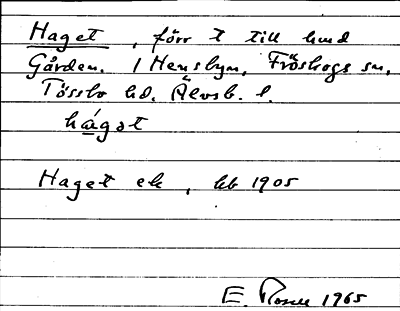 Haget, förr t till hmd
Gården. 1 Hensbyn, Fröskogs sn,
Tössbo hd. Älvsb. l.
hágət
Haget ek, kb 1905
E. Rosell 1965